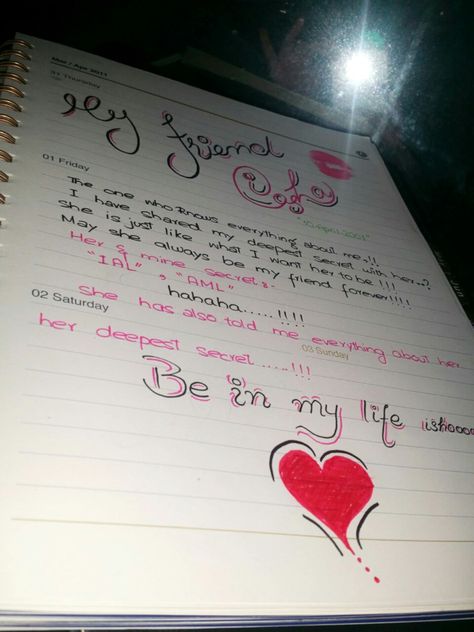 Mar / Apr 2011
31 Thursday
My friend
01 Friday
"10 April 2001"
The one who knows everything about me.!!
I have shared my deepest secret with her..?
She is just like what I want her to be !!!
May she always be my friend forever!!!!
Her & mine secret :-
"IAL" , "AML"
hahaha.....!!!!
02 Saturday
She has also told me everything about her
03 Sunday
her deepest secret .....!!!
Be in my life ishoooo